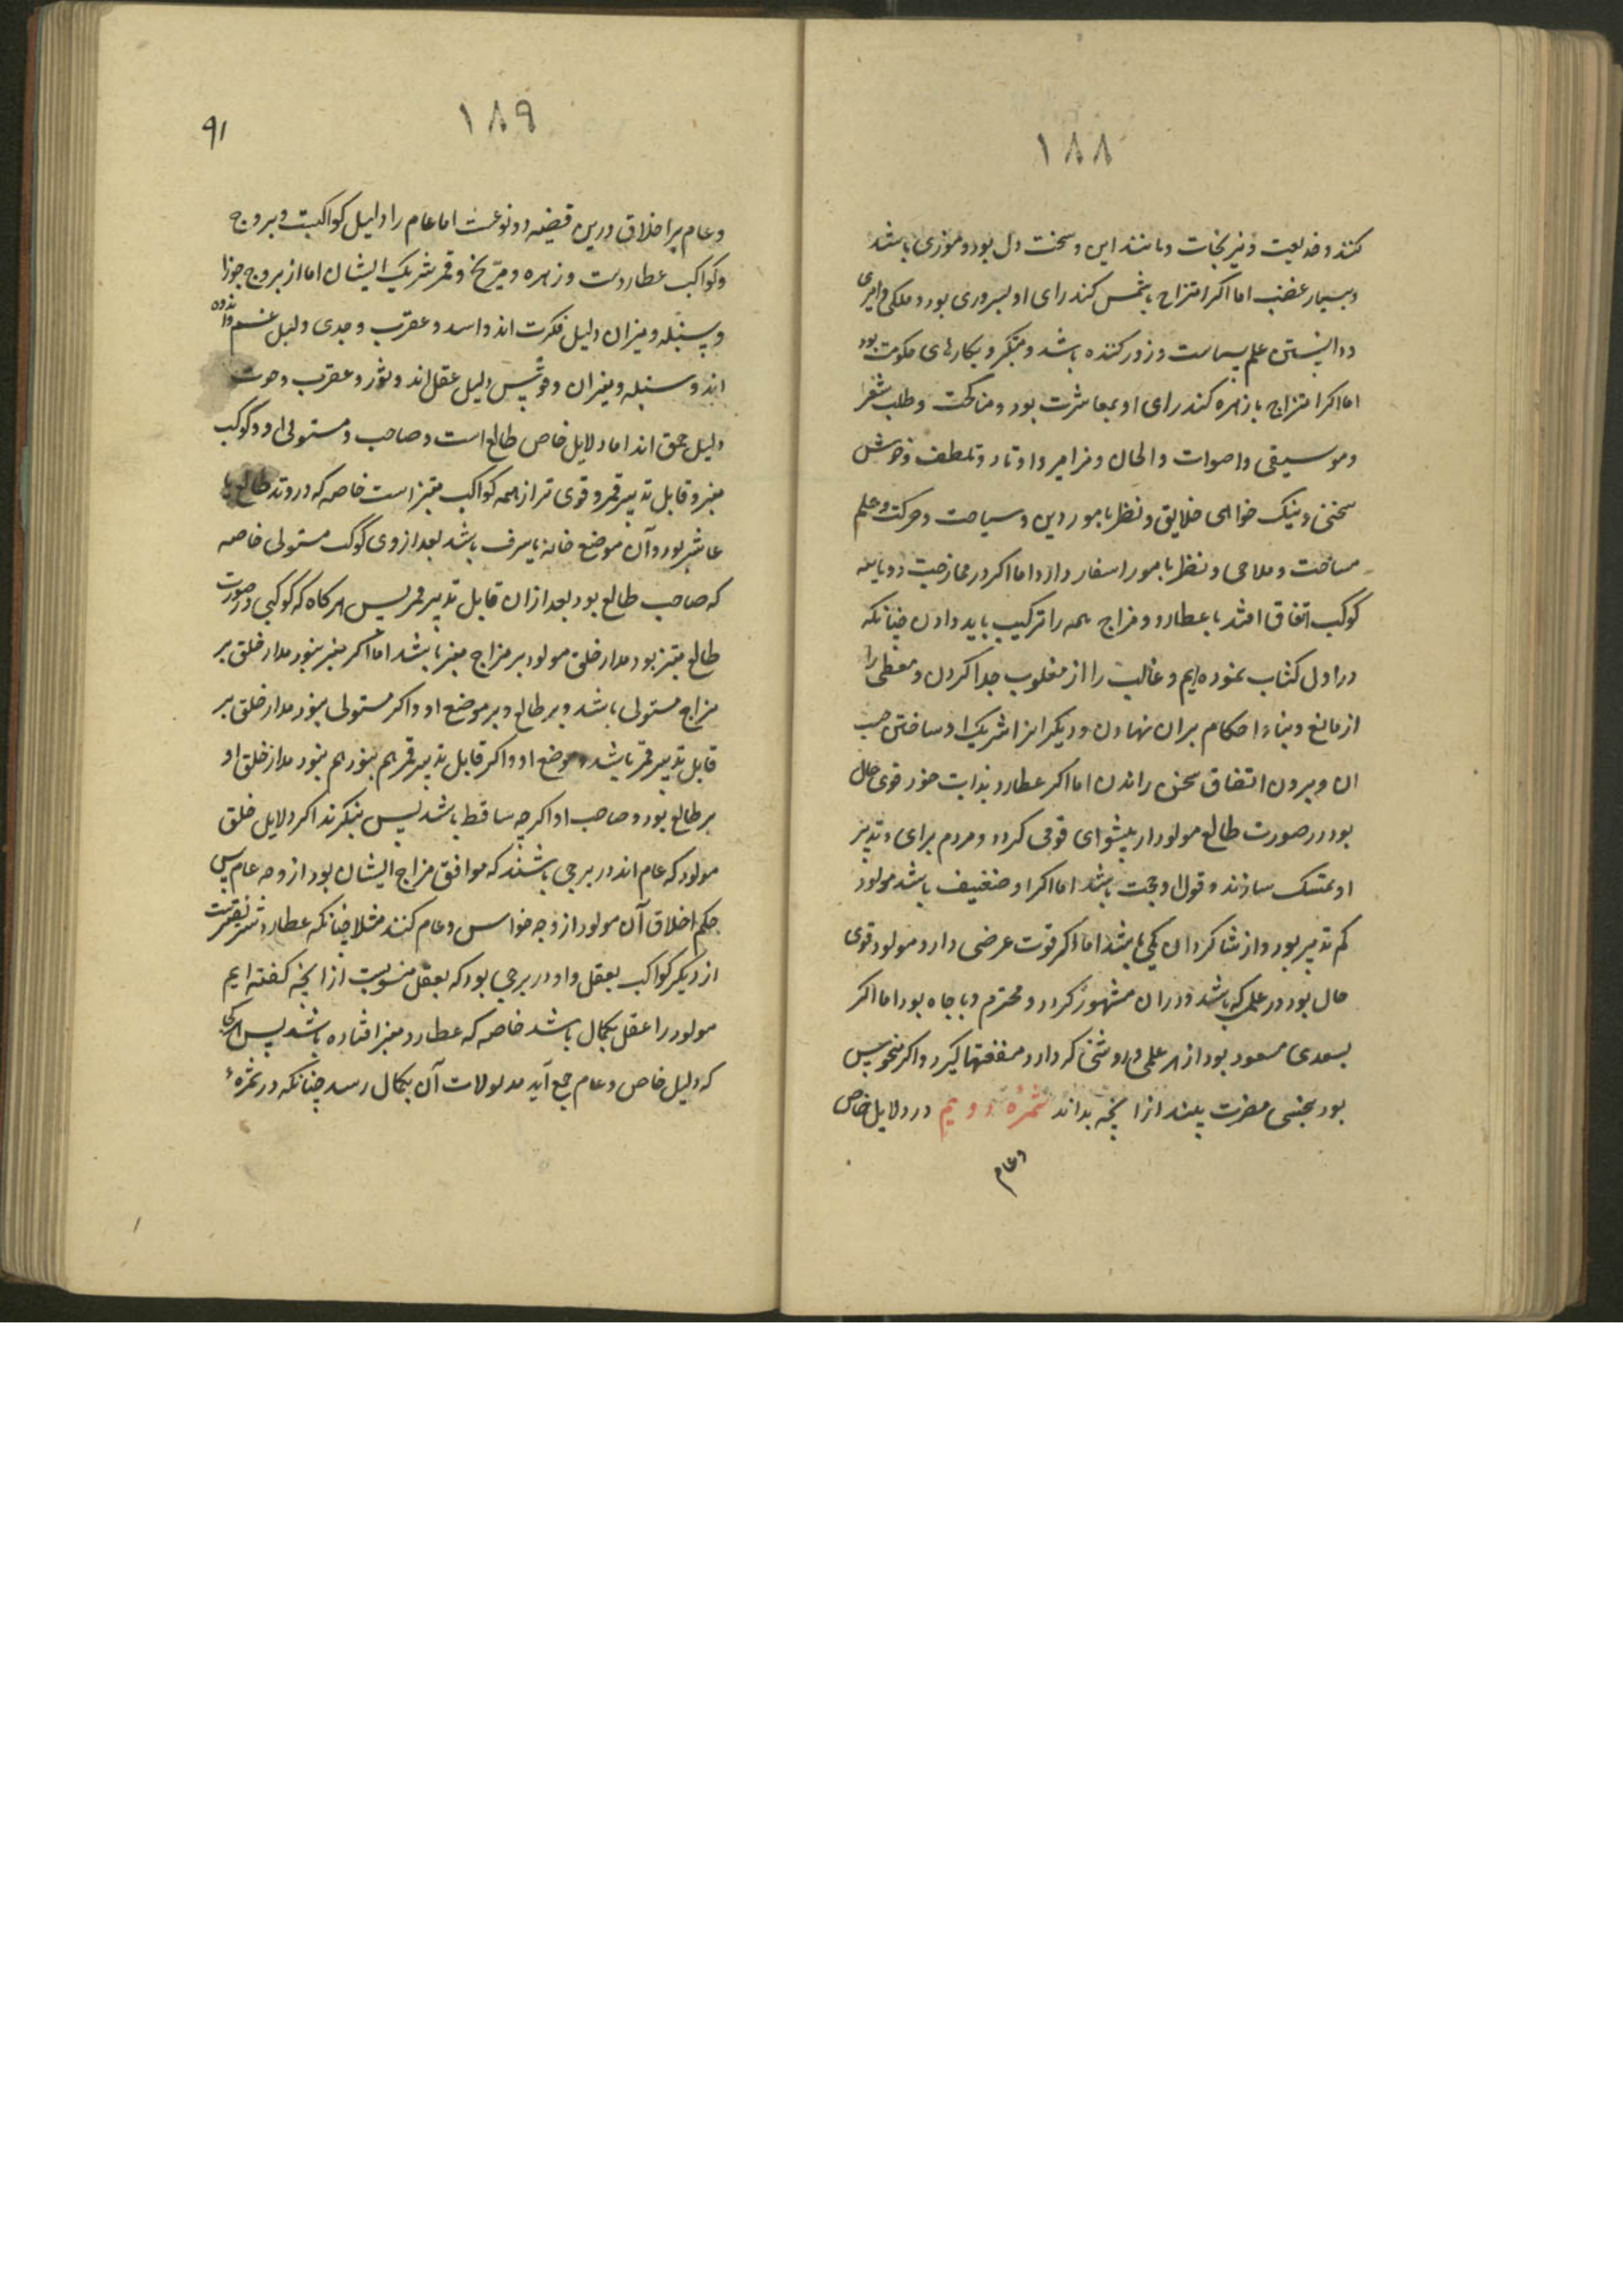 ١٨٨
کنند و خدیعت و نیرنجات و مانند این و سخت دل بود و موذی باشد
و بسیار غضب اما اکر امتزاج با شمس کند رای او بسروری بود و ملکی و امیری
و دانستن علم سیاست و زور کننده باشد و متکبر و بکارهای حکومت بود
اما اکر امتزاج با زهره کند رای او بمعاشرت بود و مناکحت و طلب شعر
و موسیقی و اصوات و الحان و مزامیر و اوتار و تلطف و خوش
سخنی و نیک خواهی خلایق و نظر بامور دین و سیاحت و حرکت و علم
مساحت و ملاحی و نظر بامور اسفار دارد اما اکر در ممازجت دو یا سه
کوکب اتفاق افتد با عطارد و مزاج همه را ترکیب باید دادن چنانکه
در اول کتاب نموده ایم و غالب را از مغلوب جدا کردن و معطی را
از مانع و بناء احکام بران نهادن و دیکر انرا شریک او ساختن حسب
ان و برون اتفاق سخن راندن اما اکر عطارد بذات خود قوی حال
بود در صورت طالع مولود از پیشوای قومی کردد و مردم برای و تدبیر
او تمسک سازند و قول او حجت باشد اما اکر او ضعیف باشد مولود
کم تدبیر بود و از شاکردان یکی باشد اما اکر قوت عرضی دارد مولود قوی
حال بود در علمی که باشد و دران مشهور کردد و محترم و با جاه بود اما اکر
بسعدی مسعود بود از هر علمی و روشنی که دارد منفعتها کیرد و اکر منحوس
بود بنحسی مضرت بیند از انچه بداند ثمره دویم در دلایل خاص
و عام
١٨٩
٩١
و عام بر اخلاق درین قضیه دو نوعست اما عام را دلیل کواکبست و بروج
و کواکب عطاردست و زهره و مریخ و قمر شریک ایشان اما از بروج جوزا
و سنبله و میزان دلیل فکرت اند و اسد و عقرب و جدی دلیل غم و اندوه
اند و سنبله و میزان و قوس دلیل عقل اند و ثور و عقرب و حوت
دلیل حمق اند اما دلایل خاص طالع است و صاحب و مستولی او و کوکب
مبتز و قابل تدبیر قمر و قوی تر از همه کواکب مبتز است خاصه که در وتد طالع یا
عاشر بود و آن موضع خانه یا شرف باشد بعد از وی کوکب مستولی خاصه
که صاحب طالع بود بعد ازان قابل تدبیر قمر پس هرکاه که کوکبی در صورت
طالع مبتز بود مدار خلق مولود بر مزاج مبتز باشد اما اکر مبتز نبود مدار خلق بر
مزاج مستولی باشد و بر طالع و بر موضع او و اکر مستولی نبود مدار خلق بر
قابل تدبیر قمر باشد و موضع او و اکر قابل تدبیر قمر هم نبود هم نبود مدار خلق او
بر طالع بود و صاحب او اکر چه ساقط باشد پس بنکرند اکر دلایل خلق
مولود که عام اند در برجی باشند که موافق مزاج ایشان بود از وجه عام پس
حکم اخلاق آن مولود از وجه خواص و عام کنند مثلا چنانکه عطارد شریف ترست
از دیکر کواکب بعقل و او در برجی بود که بعقل منسوبست از انچه کفته ایم
مولود را عقل بکمال باشد خاصه که عطارد مبتز افتاده باشد پس
که دلیل خاص و عام جمع آید مدلولات آن بکمال رسد چنانکه در ثمرهٔ